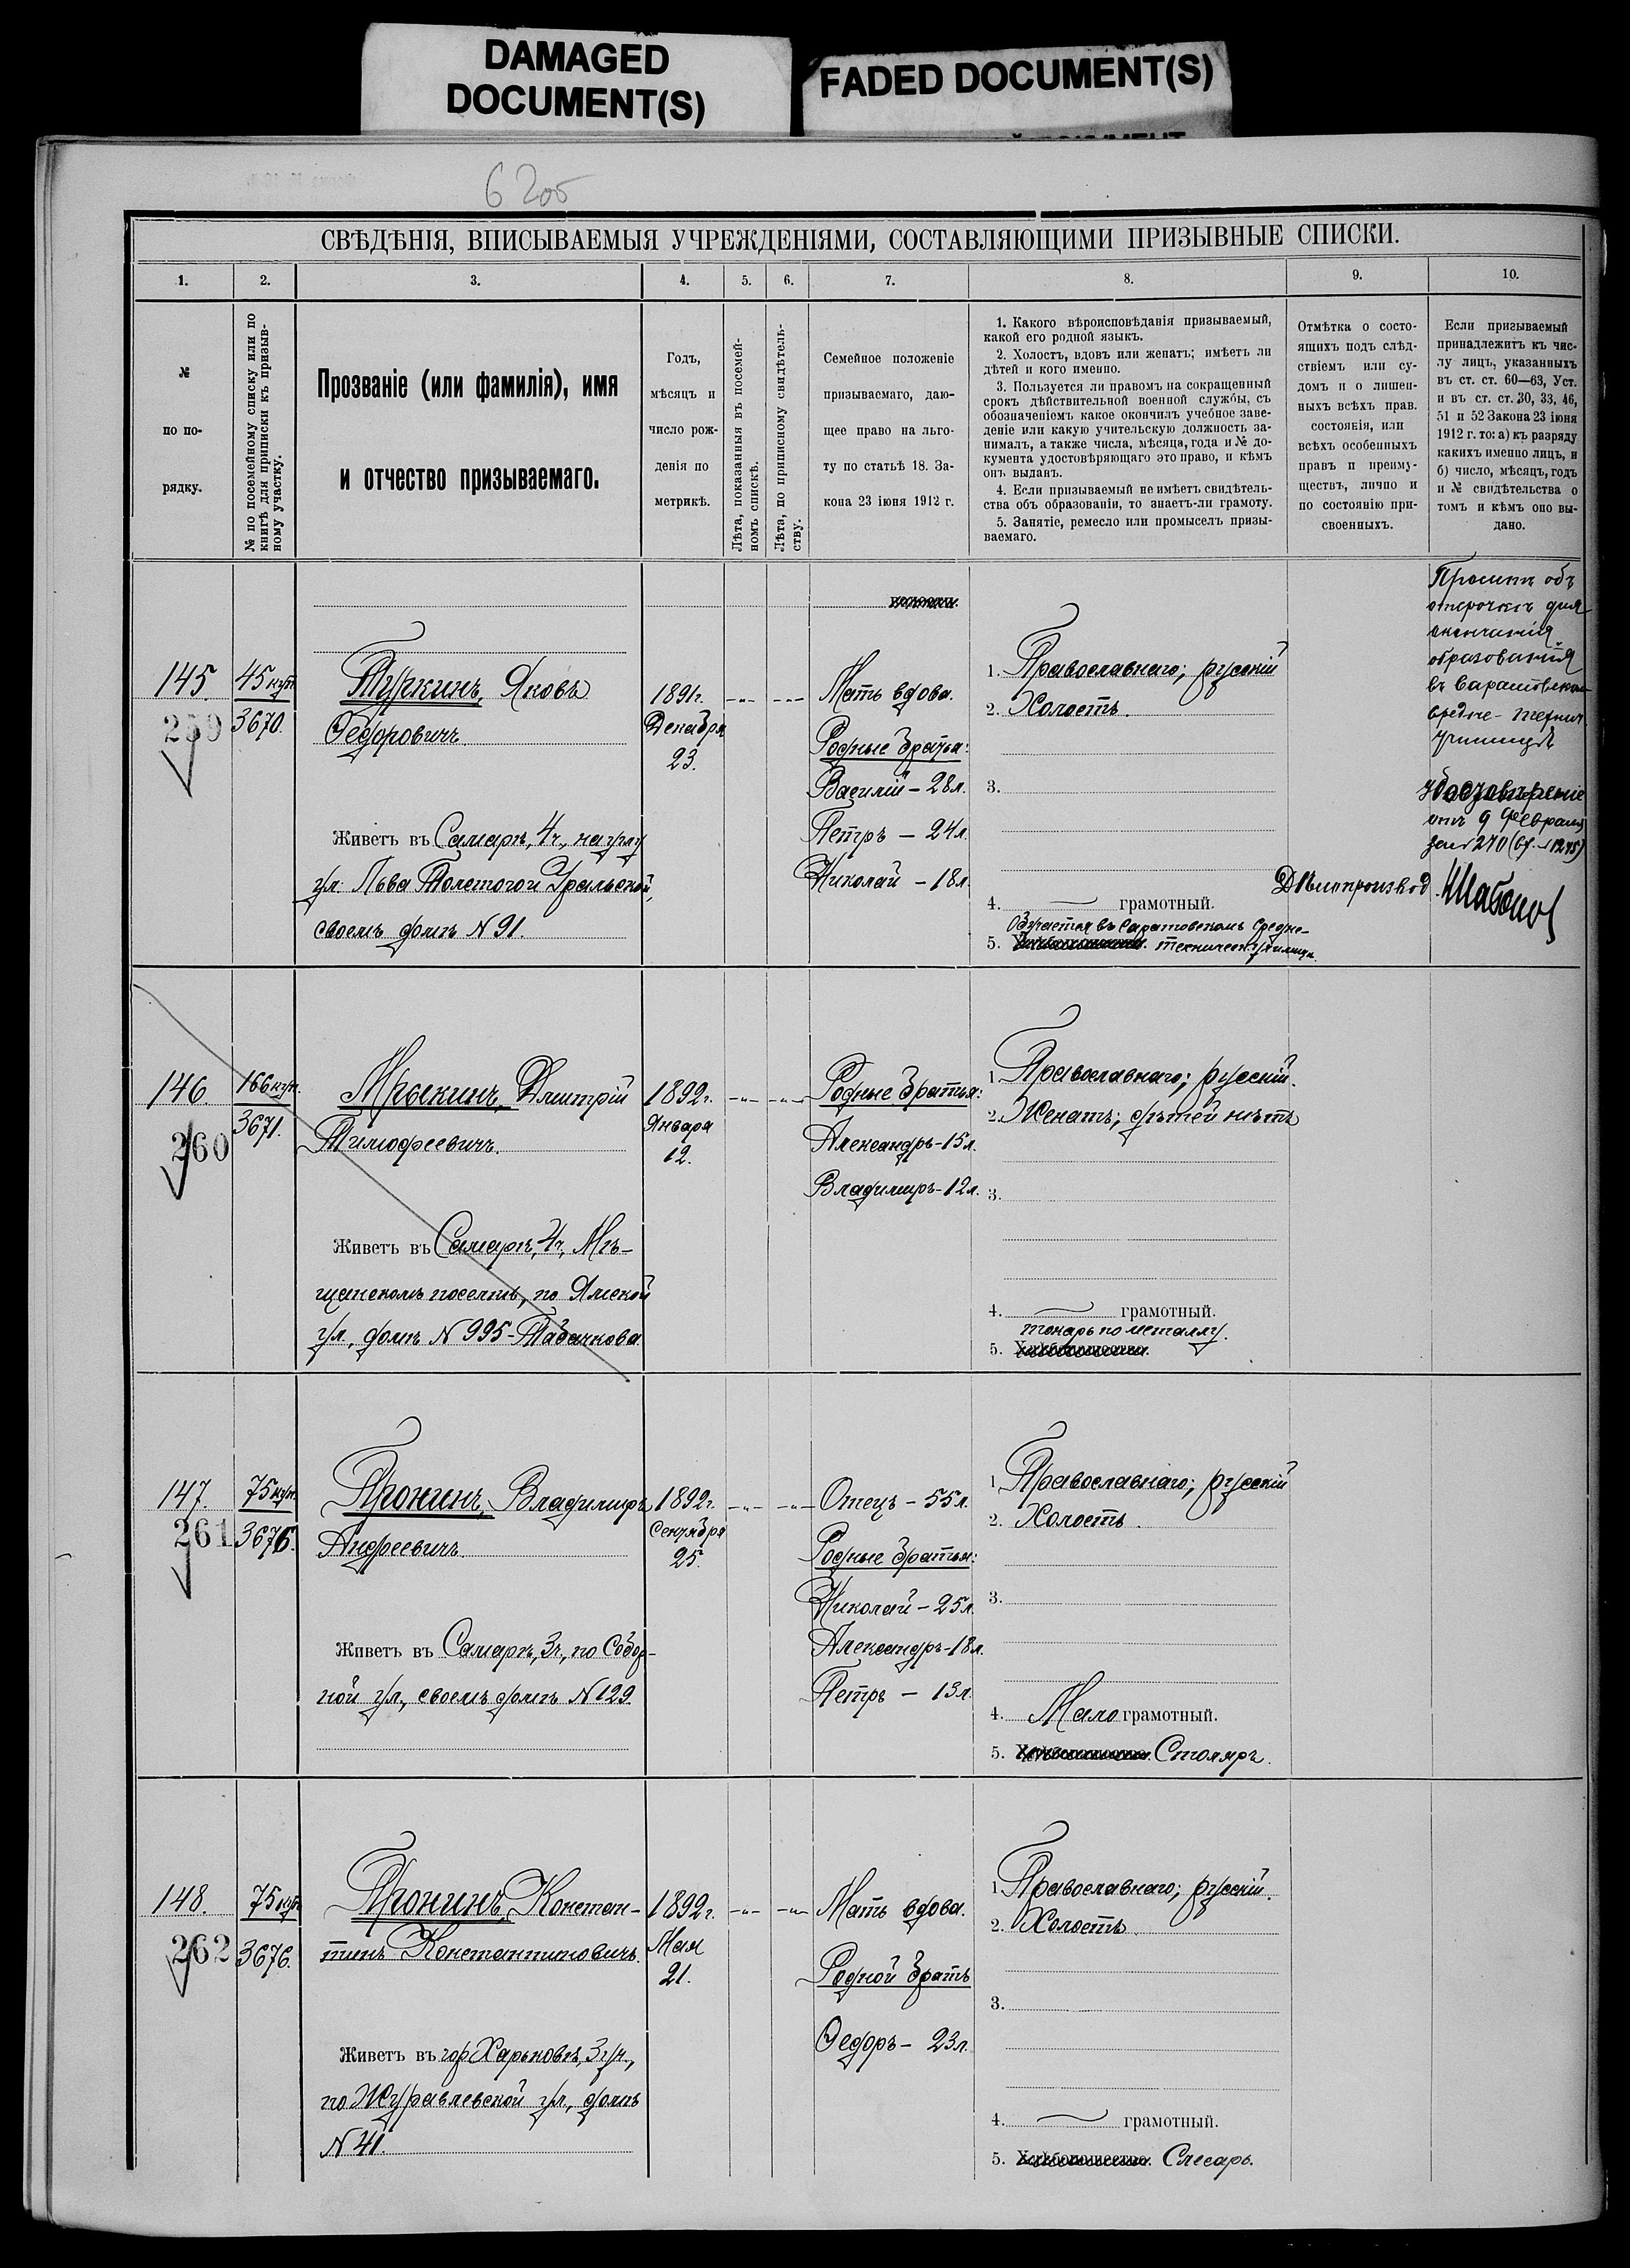 DAMAGED
DOCUMENT(S)
FADED DOCUMENT(S)
СВѢДѢНІЯ, ВПИСЫВАЕМЫЯ УЧРЕЖДЕНІЯМИ, СОСТАВЛЯЮЩИМИ ПРИЗЫВНЫЕ СПИСКИ.
1. 2. 3. 4. 5. 6. 7. 8. 9. 10.
№
по по-
рядку.
№ по посемейному списку или по
книгѣ для приписки къ призыв-
ному участку.
Прозваніе (или фамилія), имя
и отчество призываемаго.
Годъ,
мѣсяцъ и
число рож-
денія по
метрикѣ.
Лѣта, показанныя въ посемей-
номъ спискѣ.
Лѣта, по приписному свидѣтель-
ству.
Семейное положеніе
призываемаго, даю-
щее право на льго-
ту по статьѣ 18. За-
кона 23 іюня 1912 г.
1. Какого вѣроисповѣданія призываемый,
какой его родной языкъ.
2. Холостъ, вдовъ или женатъ; имѣетъ ли
дѣтей и кого именно.
3. Пользуется ли правомъ на сокращенный
срокъ дѣйствительной военной службы, съ
обозначеніемъ какое окончилъ учебное заве-
деніе или какую учительскую должность за-
нималъ, а также числа, мѣсяца, года и № до-
кумента удостовѣряющаго это право, и кѣмъ
онъ выданъ.
4. Если призываемый не имѣетъ свидѣтель-
ства объ образованіи, то знаетъ-ли грамоту.
5. Занятіе, ремесло или промыселъ призы-
ваемаго.
Отмѣтка о состо-
ящихъ подъ слѣд-
ствіемъ или су-
домъ и о лишен-
ныхъ всѣхъ прав.
состоянія, или
всѣхъ особенныхъ
правъ и преиму-
ществъ, лично и
по состоянію при-
своенныхъ.
Если призываемый
принадлежитъ къ чис-
лу лицъ, указанныхъ
въ ст. ст. 60—63, Уст.
и въ ст. ст. 30, 33, 46,
51 и 52 Закона 23 іюня
1912 г. то: а) къ разряду
какихъ именно лицъ, и
б) число, мѣсяцъ, годъ
и № свидѣтельства о
томъ и кѣмъ оно вы-
дано.
145
259
45 куп.
3670.
Туркинъ, Яковъ
Федоровичъ.
Живетъ въ Самарѣ, 4ч., на углу
ул. Льва Толстого и Уральской,
своемъ домѣ № 91.
1891г.
Декабря
23.
Мать вдова.
Родные братья:
Василій – 28л.
Петръ – 24л.
Николай – 18л.
1. Православнаго; русскій
2. Холостъ.
3.
4. грамотный.
Обучается въ Саратовскомъ Средне-
5. техническ. училищѣ.
Проситъ объ
отсрочкѣ для
окончанія
образованія
въ Саратовском
средне-технич
училищѣ
Удостовѣреніе
отъ 9 Февраля
за № 270 (вх. № 1275)
Дѣлопроизвод.
146.
260
166 куп.
3671.
Мрыкинъ, Дмитрій
Тимофеевичъ.
Живетъ въ Самарѣ, 4ч., Мѣ-
щанскомъ поселкѣ, по Ямской
ул., домъ № 995 – Табачкова
1892г.
Января
12.
Родные братья:
Александръ – 15л.
Владимиръ – 12л.
1. Православнаго; русскій.
2. Женатъ; дѣтей нѣтъ
3.
4. грамотный.
токарь по металлу.
5.
147.
261
75 куп.
3676.
Пронинъ, Владимиръ
Андреевичъ.
Живетъ въ Самарѣ, 3ч., по Собор-
ной ул., своемъ домѣ № 129.
1892г.
Сентября
25.
Отецъ – 55л.
Родные братья:
Николай – 25л.
Александръ – 18л.
Петръ – 13л.
1. Православнаго; русскій
2. Холостъ.
3.
4. Мало грамотный.
5. Столяръ.
148.
262
75 куп
3676.
Пронинъ, Констан-
тинъ Константиновичъ.
Живетъ въ гор. Харьковѣ, 3 уч.,
по Журавлевской ул., домъ
№ 41.
1892г.
Мая
21.
Мать вдова.
Родной братъ
Федоръ – 23л.
1. Православнаго; русскій.
2. Холостъ.
3.
4. грамотный.
5. Слесарь.